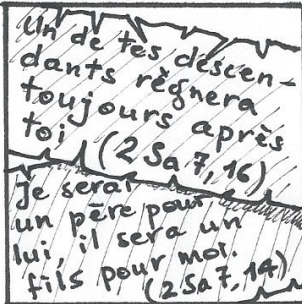 Un de tes descen-
dants règnera
toujours après
toi (2 Sa 7, 16)
Je serai
un père pour
lui, il sera un
fils pour moi.
(2 Sa 7, 14)